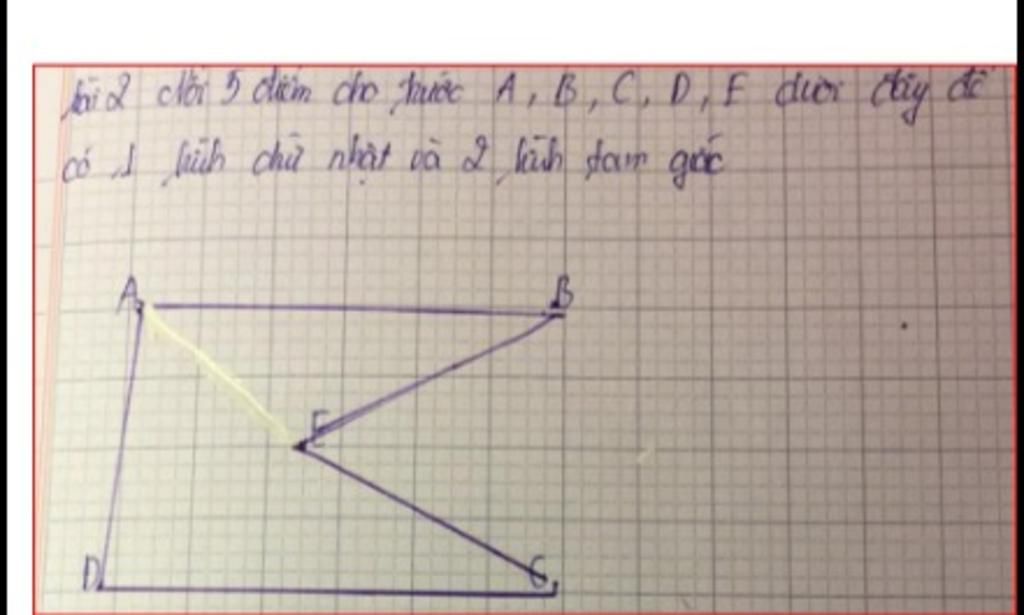 bài 2 Nối 5 điểm cho trước A, B, C, D, E dưới đây để
có 1 hình chữ nhật và 2 hình tam giác
A
B
E
D
C